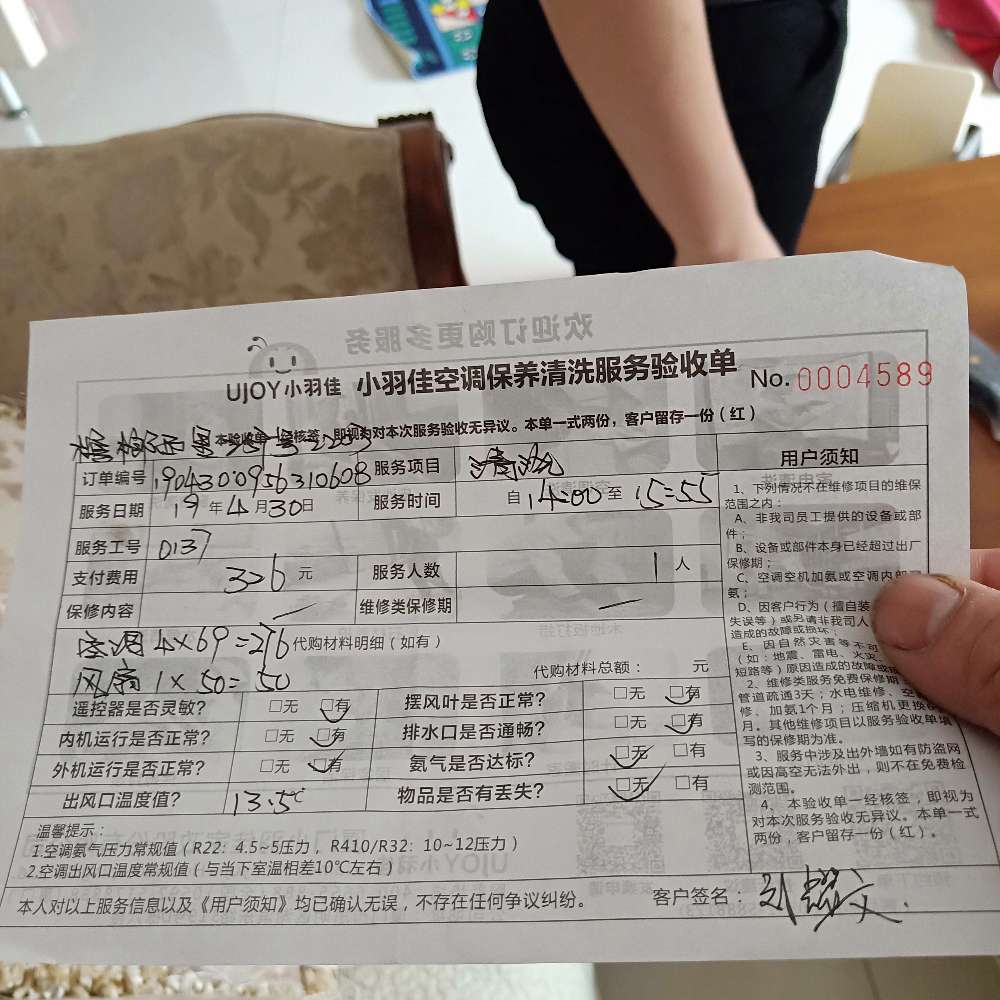 欢迎订购更多服务
UJOY小羽佳 小羽佳空调保养清洗服务验收单 No. 0004589
本验收单一经核签，即视为对本次服务验收无异议。本单一式两份，客户留存一份（红）
订单编号 1904300956310608 服务项目 清洗
服务日期 19年4月30日 服务时间 自14:00至15:55
服务工号 0137
支付费用 326元 服务人数 1人
保修内容 — 维修类保修期 —
空调4×69=276 代购材料明细（如有）
风扇1×50=50 代购材料总额： 元
遥控器是否灵敏？ □无 □有 摆风叶是否正常？ □无 □有
内机运行是否正常？ □无 □有 排水口是否通畅？ □无 □有
外机运行是否正常？ □无 □有 氨气是否达标？ □无 □有
出风口温度值？ 13.5℃ 物品是否有丢失？ □无 □有
温馨提示：
1.空调氨气压力常规值（R22：4.5~5压力，R410/R32：10~12压力）
2.空调出风口温度常规值（与当下室温相差10℃左右）
本人对以上服务信息以及《用户须知》均已确认无误，不存在任何争议纠纷。 客户签名：
用户须知
1、下列情况不在维修项目的维保
范围之内：
A、非我司员工提供的设备或部
件；
B、设备或部件本身已经超过出厂
保修期；
C、空调空机加氨或空调内部
氨；
D、因客户行为（擅自装
失误等）或另请非我司人
造成的故障或损坏；
E、因自然灾害等不可
（如：地震、雷电、火灾
短路等）原因造成的故障或
2、维修类服务免费保修期
管道疏通3天；水电维修、空
修、加氨1个月；压缩机更换
月。其他维修项目以服务验收单填
写的保修期为准。
3、服务中涉及出外墙如有防盗网
或因高空无法外出，则不在免费检
测范围。
4、本验收单一经核签，即视为
对本次服务验收无异议。本单一式
两份，客户留存一份（红）。